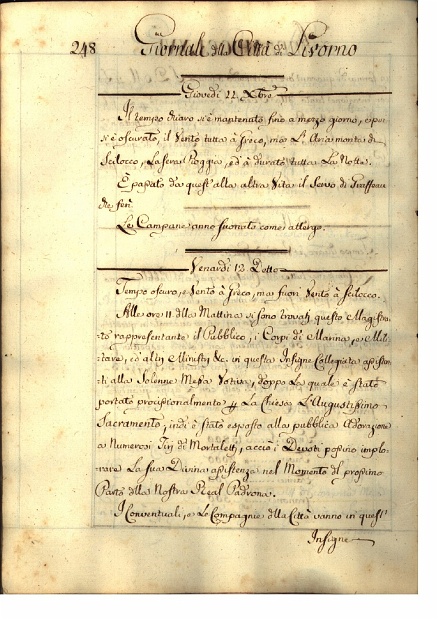 248 Giornale della Città di Livorno
Giovedì 12 Xbre
Il tempo chiaro s'è mantenuto fino a mezzo giorno, e poi
s'è oscurato, il Vento tutta à Greco, ma L'Aria monta da
Scilocco, La sera Pioggia, ed à durato tutta La Notte.
È passato da quest'alla altra Vita il Servo di
Le Campane anno suonato come all'ergo.
Venardi 13 Detto
Tempo oscuro, e Vento à Greco, mas fuori Vento à Scilocco.
Alle ore 11 della Mattina si sono trovati questo Magistra-
to rappresentante il Pubblico, i Corpi di Marina, e Mili-
tare, ed altri Ministri &c. in questa Insigne Collegiata assisten-
ti alla Solenne Messa Votiva, doppo La quale è stato
portato processionalmente p La Chiesa L'Augustissimo
Sacramento, indi è stato esposto alla pubblica Adorazione
a Numerosi Tiri di Mortaletti, acciò i Devoti possino implo-
rare La sua Divina assistenza nel Momento del prossimo
Parto della Nostra Real Padrona.
I Conventuali, e Le Compagnie della Città vanno in quest'
Insigne